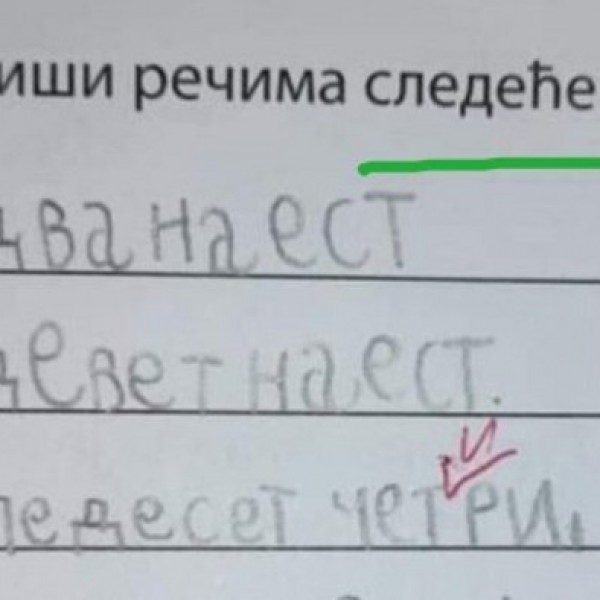 иши речима следеће
дванаест
деветнаест.
и
педесет четри.